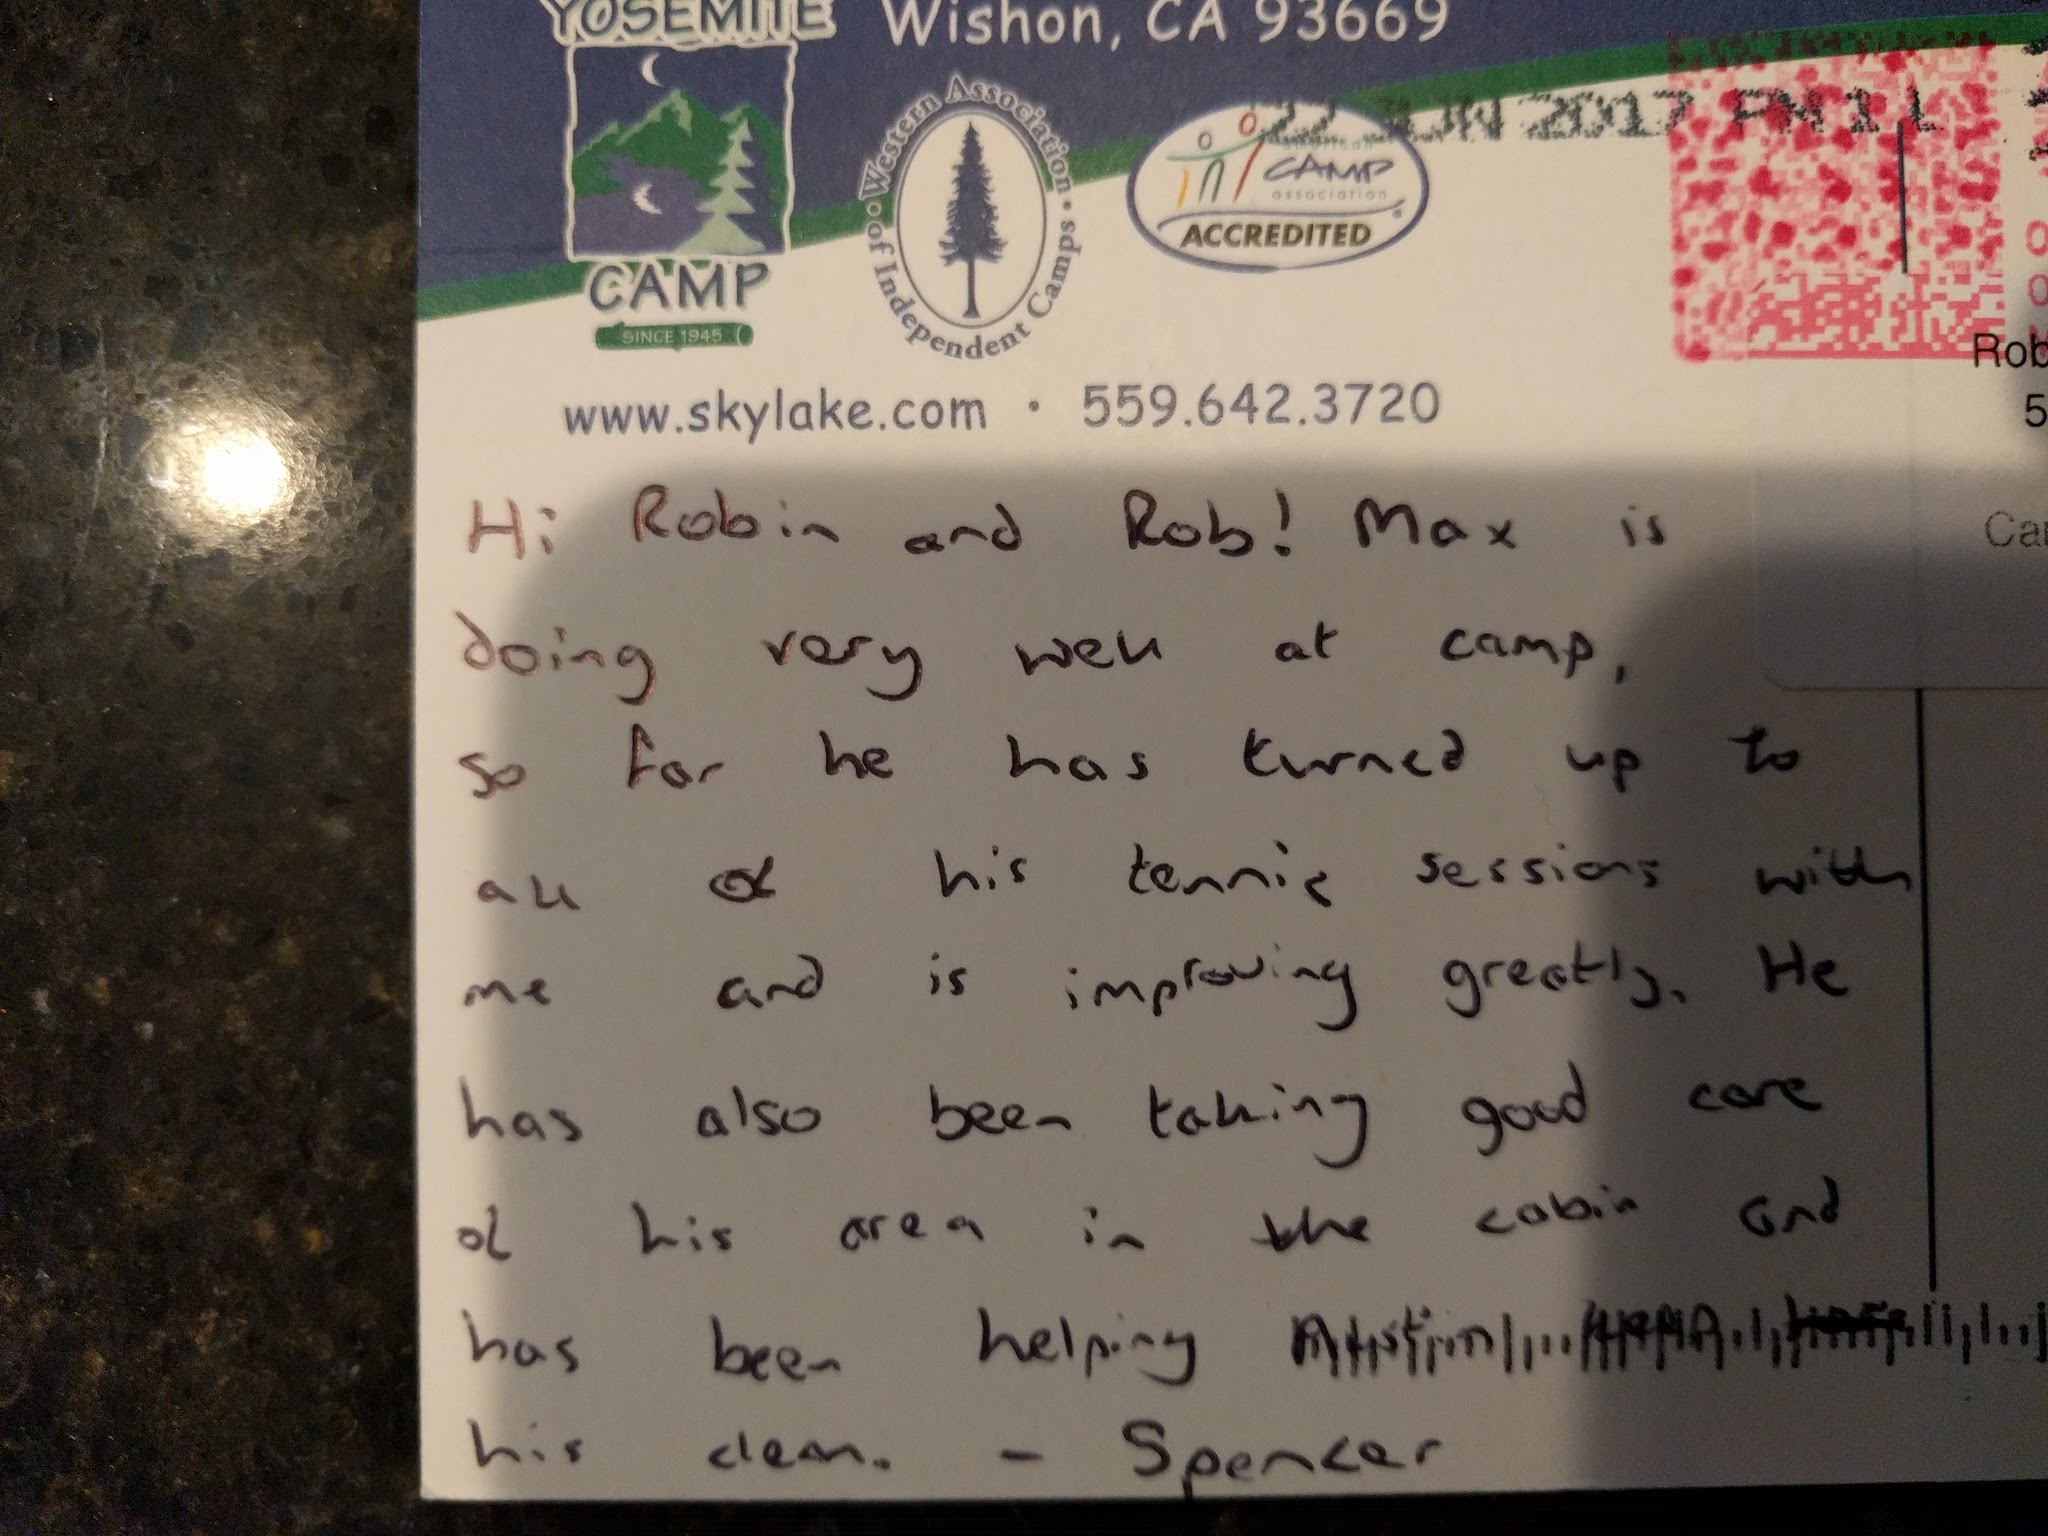 YOSEMITE
Wishon, CA 93669
CAMP
SINCE 1945
Western Association of Independent Camps
CAMP
association
ACCREDITED
22 JUN 2017 PM 1 L
www.skylake.com · 559.642.3720
Rob
5
Car
Hi Robin and Rob! Max is
doing very well at camp,
so far he has turned up to
all of his tennis sessions with
me and is improving greatly. He
has also been taking good care
of his area in the cabin and
has been helping
his clean. - Spencer